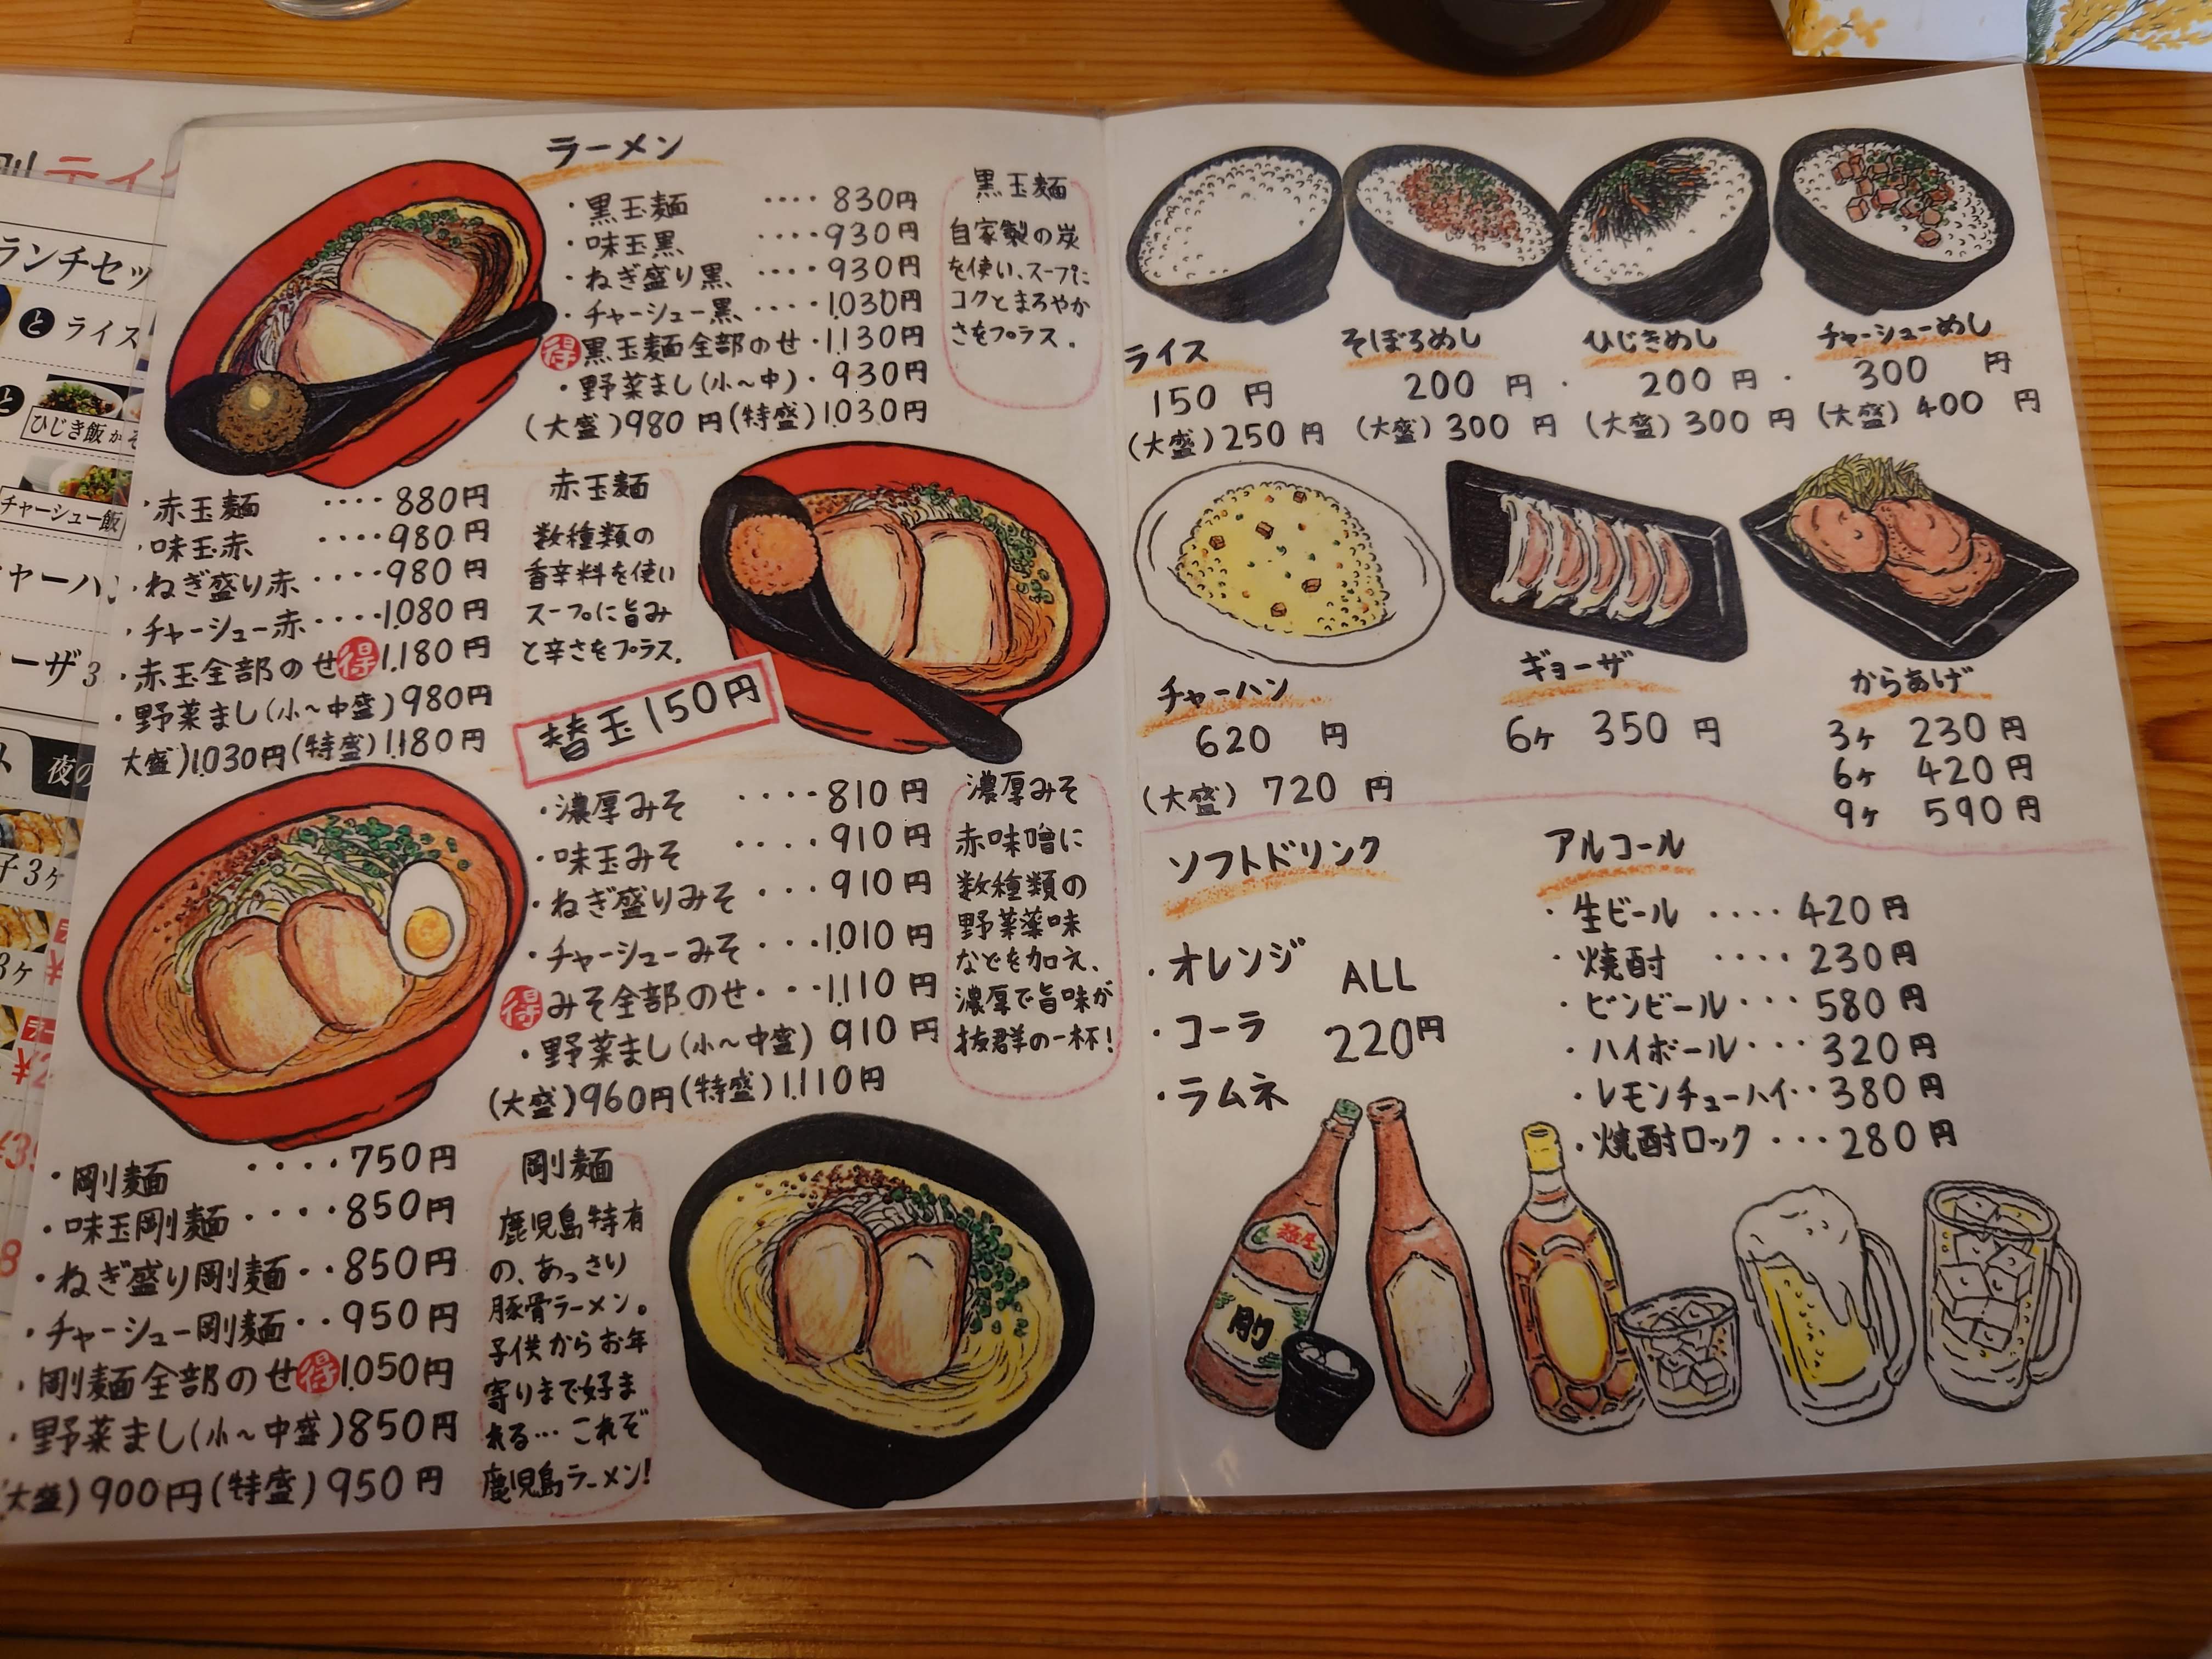 ラーメン
・黒玉麺 ････ 830円
・味玉黒 ････930円
・ねぎ盛り黒 ････930円
・チャーシュー黒････1.030円
得黒玉麺全部のせ・1.130円
・野菜まし(小～中)・930円
(大盛)980円(特盛)1.030円
黒玉麺
自家製の炭
を使い、スープに
コクとまろやか
さをプラス。
・赤玉麺 ････880円
・味玉赤 ････980円
・ねぎ盛り赤････980円
・チャーシュー赤････1.080円
・赤玉全部のせ得1.180円
・野菜まし(小～中盛)980円
大盛)1.030円(特盛)1.180円
赤玉麺
数種類の
香辛料を使い
スープに旨み
と辛さをプラス。
替玉150円
・濃厚みそ ････810円
・味玉みそ ････910円
・ねぎ盛りみそ ･･･910円
・チャーシューみそ･･･1.010円
得みそ全部のせ･･･1.110円
・野菜まし(小～中盛)910円
(大盛)960円(特盛)1.110円
濃厚みそ
赤味噌に
数種類の
野菜薬味
などを加え、
濃厚で旨味が
抜群の一杯!
・剛麺 ････750円
・味玉剛麺････850円
・ねぎ盛り剛麺･･850円
・チャーシュー剛麺･･950円
・剛麺全部のせ得1.050円
・野菜まし(小～中盛)850円
(大盛)900円(特盛)950円
剛麺
鹿児島特有
の、あっさり
豚骨ラーメン。
子供からお年
寄りまで好ま
れる…これぞ
鹿児島ラーメン!
ライス
150円
(大盛)250円
そぼろめし
200円
(大盛)300円
ひじきめし
200円
(大盛)300円
チャーシューめし
300円
(大盛)400円
チャーハン
620円
(大盛)720円
ギョーザ
6ヶ 350円
からあげ
3ヶ 230円
6ヶ 420円
9ヶ 590円
ソフトドリンク
・オレンジ
・コーラ
・ラムネ
ALL
220円
アルコール
・生ビール ････420円
・焼酎 ････230円
・ビンビール･･･580円
・ハイボール･･･320円
・レモンチューハイ･･380円
・焼酎ロック･･･280円
剛
ランチセッ
と ライス
と
ひじき飯か
チャーシュー飯
ャーハン
ーザ3
夜の
子3ヶ
3ヶ